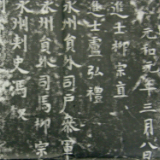 元和元年三月八
進士柳宗直
進士盧弘禮
永州員外司戶參軍
永州員外司馬柳宗
永州刺史馮